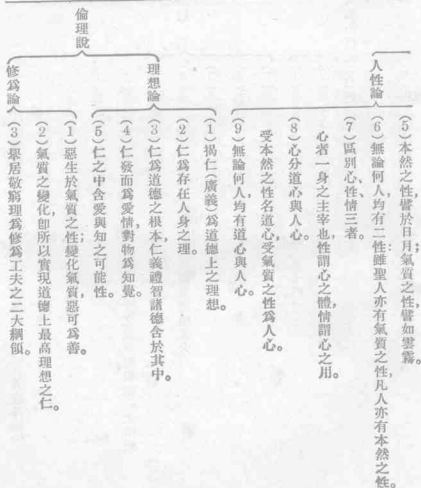 人性論
(5)本然之性,譬於日月;氣質之性,譬如雲霧。
(6)無論何人,均有二性:雖聖人亦有氣質之性,凡人亦有本然之性。
(7)區別心、性、情三者。
心者一身之主宰也性謂心之體情謂心之用。
(8)心分道心與人心。
受本然之性名道心,受氣質之性爲人心。
(9)無論何人均有道心與人心。
倫理說
理想論
(1)揭仁(廣義)爲道德上之理想。
(2)仁爲存在人身之理。
(3)仁爲道德之根本仁義禮智諸德含於其中。
(4)仁發而爲愛情,對物爲知覺。
(5)仁之中含愛與知之可能性。
修爲論
(1)惡生於氣質之性;變化氣質,惡可爲善。
(2)氣質之變化,卽所以實現道德上最高理想之仁。
(3)舉居敬窮理爲修爲工夫之二大綱領。